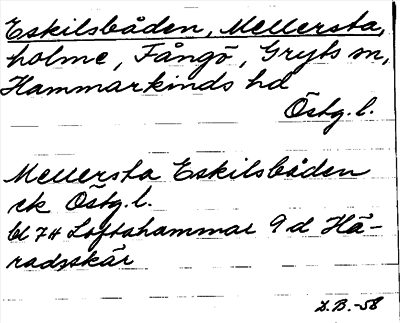 Eskilsbåden, Mellersta,
holme, Fångö, Gryts sn,
Hammarkinds hd
Östg. l.
Mellersta Eskilsbåden
ek Östg. l.
bl 74 Loftahammar 9 d Hä-
radsskär
D.B.-58